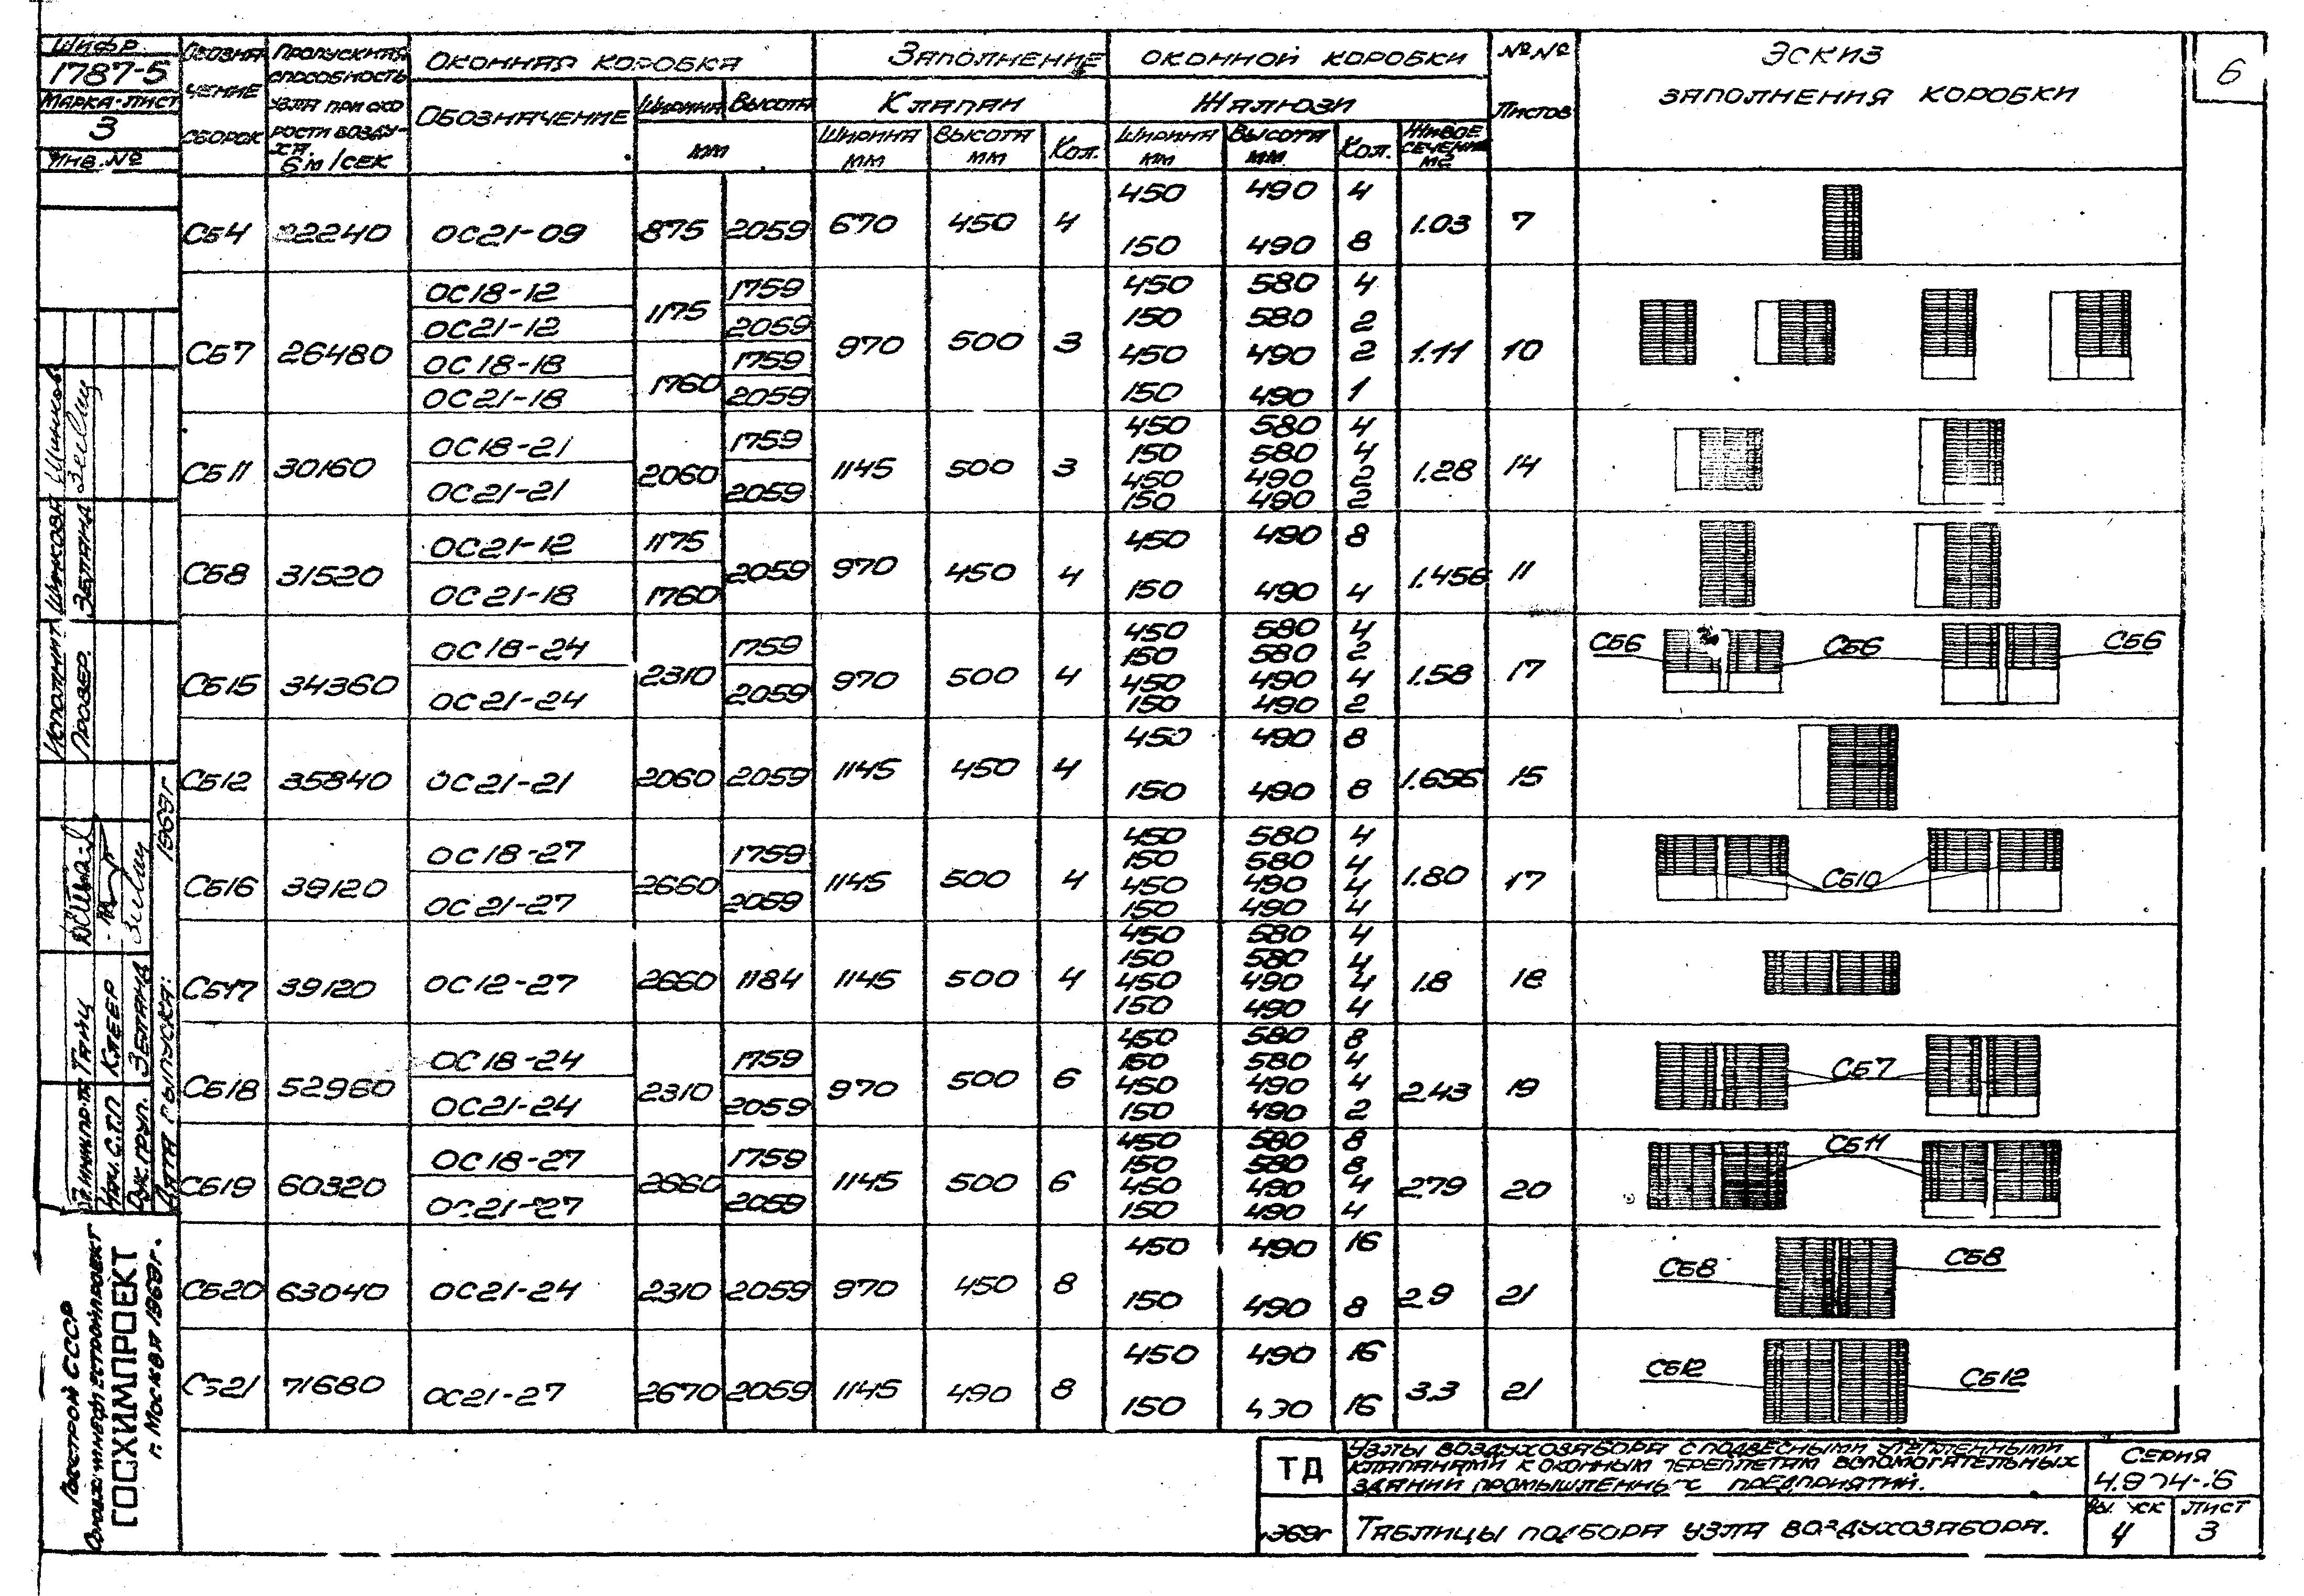 6
Шифр
1787-5
Марка-лист
3
Инв. №
Обозна чение сборок
Пропускная способность узла при ско рости возду- ха. 6 м/сек
Оконная коробка
Обозначение
Ширина Высота
мм
Заполнение оконной коробки
Клапан
Ширина мм Высота мм Кол.
Жалюзи
Ширина мм Высота мм Кол. Живое сечение м2
№№ Листов
Эскиз
заполнения коробки
СБ4 22240 ОС21-09 875 2059 670 450 4 450 490 4 1.03 7
150 490 8
СБ7 26480 ОС18-12 1175 1759 970 500 3 450 580 4 1.11 10
ОС21-12 2059 150 580 2
ОС18-18 1760 1759 450 490 2
ОС21-18 2059 150 490 1
СБ11 30160 ОС18-21 2060 1759 1145 500 3 450 580 4 1.28 14
150 580 4
ОС21-21 2059 450 490 2
150 490 2
СБ8 31520 ОС21-12 1175 2059 970 450 4 450 490 8 1.456 11
ОС21-18 1760 150 490 4
СБ15 34360 ОС18-24 2310 1759 970 500 4 450 580 4 1.58 17 СБ6 СБ6 СБ6
150 580 2
ОС21-24 2059 450 490 4
150 490 2
СБ12 35840 ОС21-21 2060 2059 1145 450 4 450 490 8 1.656 15
150 490 8
СБ16 39120 ОС18-27 2660 1759 1145 500 4 450 580 4 1.80 17 СБ10
150 580 4
ОС21-27 2059 450 490 4
150 490 4
СБ17 39120 ОС12-27 2660 1184 1145 500 4 450 580 4 1.8 18
150 580 4
450 490 4
150 490 4
СБ18 52960 ОС18-24 2310 1759 970 500 6 450 580 8 2.43 19 СБ7
150 580 4
ОС21-24 2059 450 490 4
150 490 2
СБ19 60320 ОС18-27 2660 1759 1145 500 6 450 580 8 2.79 20 СБ11
150 580 8
ОС21-27 2059 450 490 4
150 490 4
СБ20 63040 ОС21-24 2310 2059 970 450 8 450 490 16 2.9 21 СБ8 СБ8
150 490 8
СБ21 71680 ОС21-27 2670 2059 1145 490 8 450 490 16 3.3 21 СБ12 СБ12
150 490 16
Исполнит. Шишкова
Провер. Зетланд
Тайц
Нач. С.Т.П Клеер
Рук. груп. Зетланд
Дата выпуска: 1969г
Госстрой СССР
ГОСХИМПРОЕКТ
г. Москва 1969г.
ТД
Узлы воздухозабора с подвесными утепленными
клапанами к оконным переплетам вспомогательных
зданий промышленных предприятий.
Серия
4.904-16
1969г
Таблицы подбора узла воздухозабора.
Вы уск
4
Лист
3